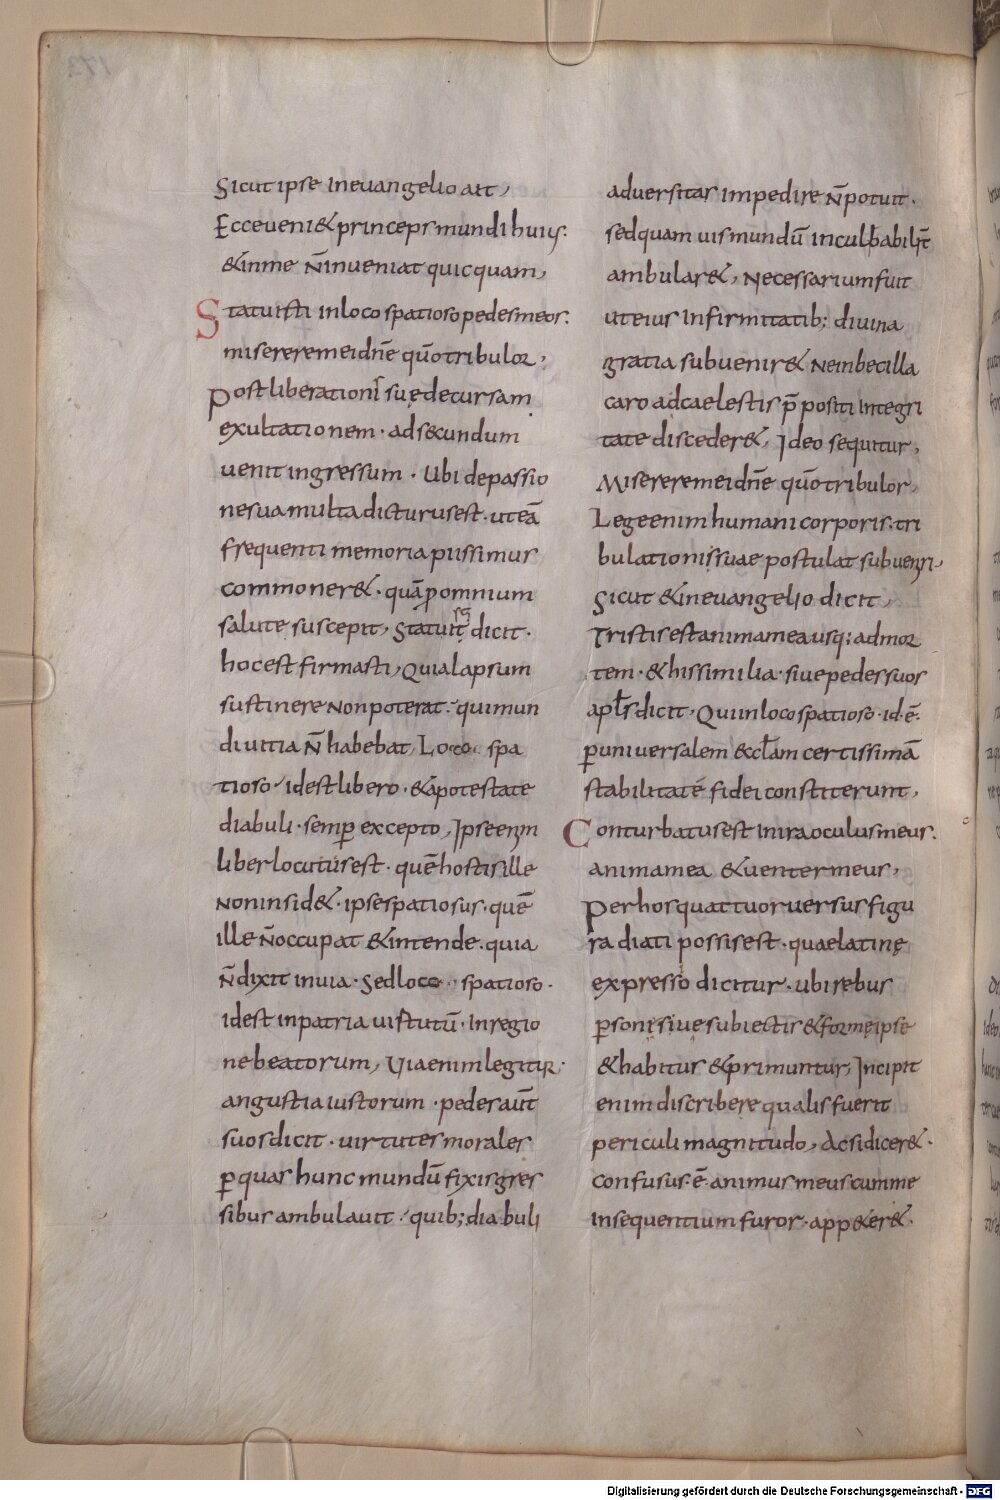 Sicut ipse in euangelio ait,
Ecce ueni& princeps mundi huius.
&inme n̄ inueniat quicquam,
Statuisti in loco spatioso pedes meos.
miserere mei dn̄e qūo tribulor,
Post liberationis suę decursam
exultationem · ad secundum
uenit ingressum · Ubi de passio
ne sua multa dicturus est · ut eā
frequenti memoria piissimus
commoner& · quā ꝓ omnium
salute suscepit, Statuit dicit ·
hoc est firmasti, Quia lapsum
sustinere non poterat · qui mun
di uitia n̄ habebat, Loco spa
tioso · id est libero · & a potestate
diaboli · semꝑ excepto, Ipse enim
liber locutus est · quē hostis ille
non insid& · ipse spatiosus · quē
ille n̄ occupat & intende · quia
n̄ dixit in uia · Sed loco spatioso ·
id est in patria uirtutū · In regio
ne beatorum, Uia enim legitur ·
angustia iustorum · pedes aut̄
suos dicit · uirtutes morales
ꝑ quas hunc mundū fixis gres
sibus ambulauit · quib; diabuli
aduersitas impedire n̄ potuit ·
sed quamuis mundū inculpabilit̄
ambular&, Necessarium fuit
ut eius infirmitatib; diuina
gratia subuenir& Ne inbecilla
caro ad caelestis p̄positi integri
tate disceder&, Ideo sequitur,
Miserere mei dn̄e qūo tribulor,
Lege enim humani corporis · tri
bulationis suae postulat subueniri,
Sicut & in euangelio dicit,
Tristis est anima mea usq; ad mor
tem · & his similia · siue pedes suos
apl̄s dicit · Qui in loco spatioso · id ē ·
ꝑ uniuersalem eccl̄am certissimā
stabilitatē fidei constiterunt,
Conturbatus est in ira oculus meus.
anima mea & uenter meus,
Per hos quattuor uersus figu
ra diatiposis est · quae latine
expressio dicitur · ubi rebus
ꝑsonis siue subiectis & formę ipse
& habitus exprimuntur, Incipit
enim discribere qualis fuerit
periculi magnitudo, Ac si dicer& ·
confusus ē animus meus cum me
insequentium furor · app&er& ·
Digitalisierung gefördert durch die Deutsche Forschungsgemeinschaft - DFG